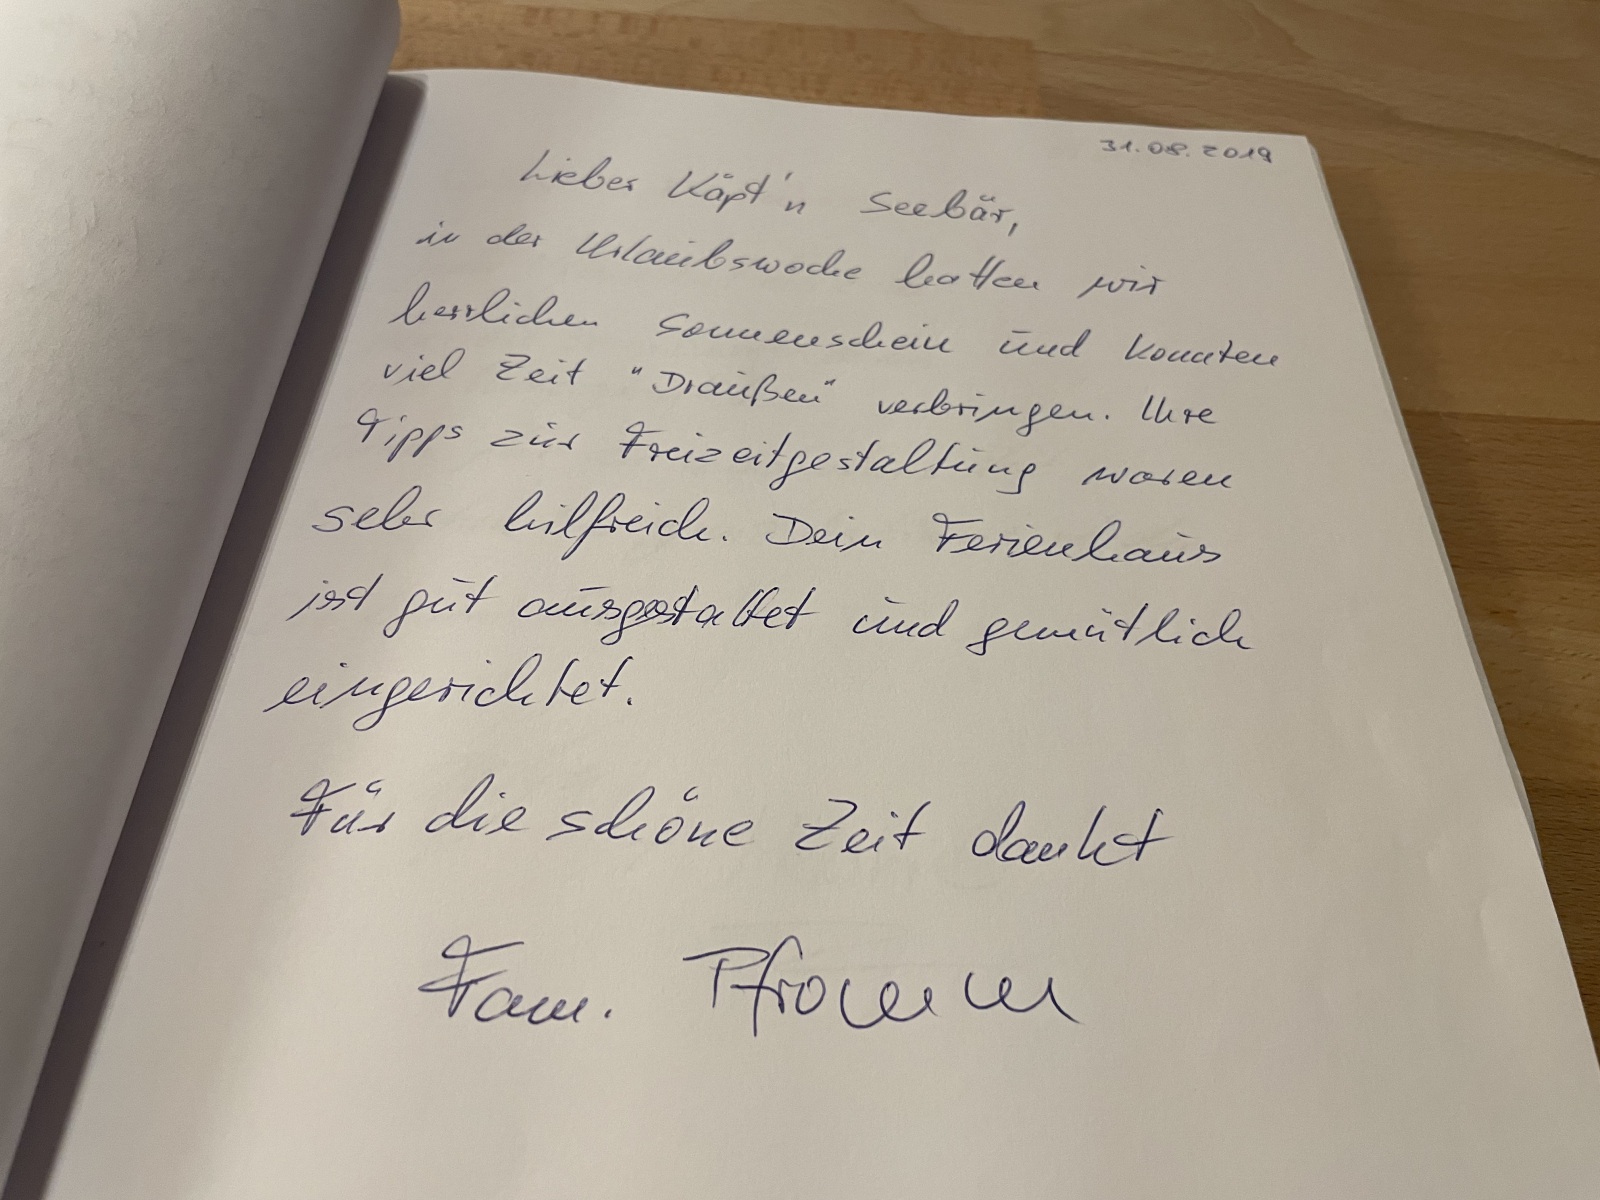 31.08.2019
Lieber Käpt'n Seebär,
in der Urlaubswoche hatten wir
herrlichen Sonnenschein und konnten
viel Zeit "Draußen" verbringen. Ihre
Tipps zur Freizeitgestaltung waren
sehr hilfreich. Dein Ferienhaus
ist gut ausgestattet und gemütlich
eingerichtet.
Für die schöne Zeit dankt
Fam. Pfromm